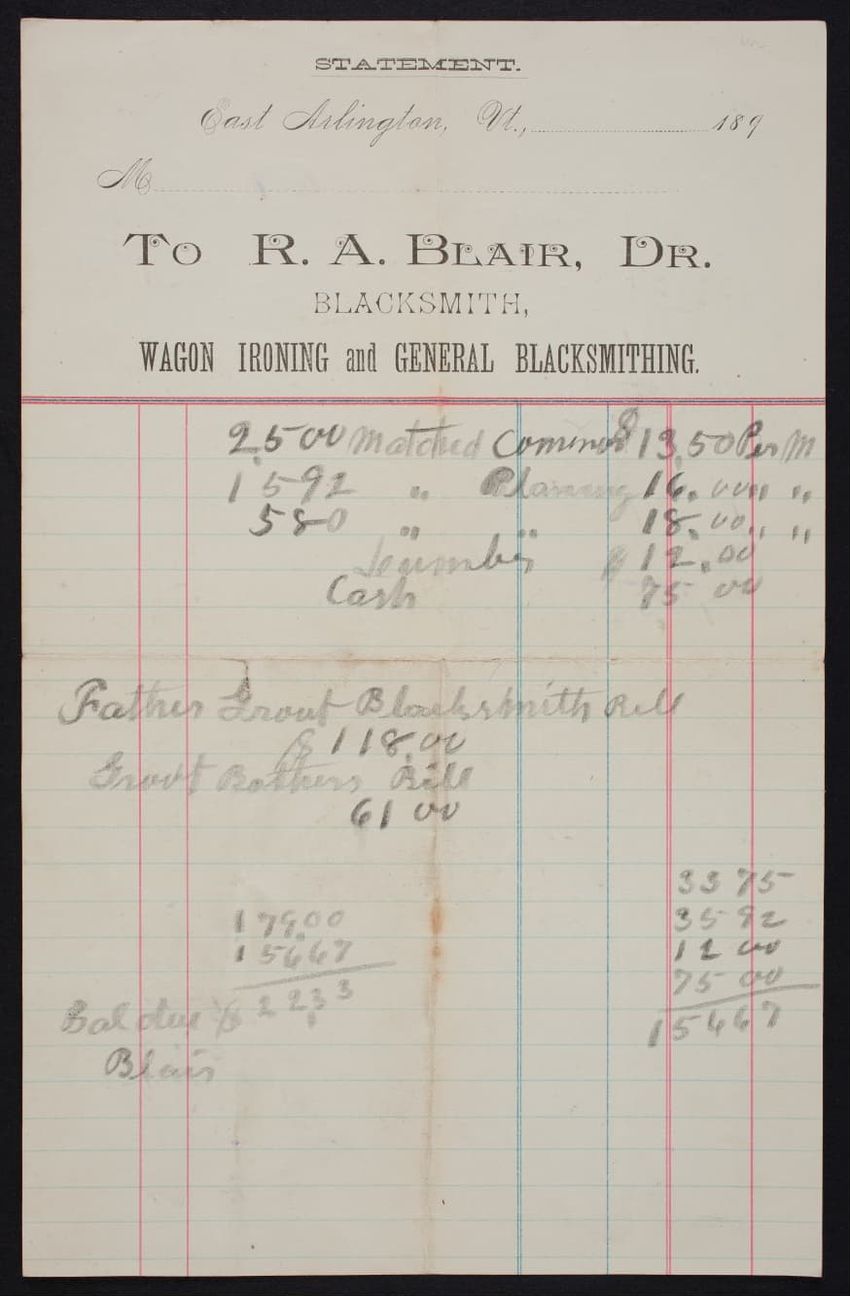 STATEMENT.
East Arlington, Vt., 189
M
To R. A. Blair, Dr.
BLACKSMITH,
WAGON IRONING and GENERAL BLACKSMITHING.
2500 Matched Common $13.50 Per M
1592 " Planning 16.00 " "
580 " " 18.00 " "
Lumber $12.00
Cash 75 00
Father Grout Blacksmith Bill
$118.00
Grout Bothers Bill
61 00
33 75
179.00 35 92
156.67 12 00
75 00
Bal due $22.33 156 67
Blair